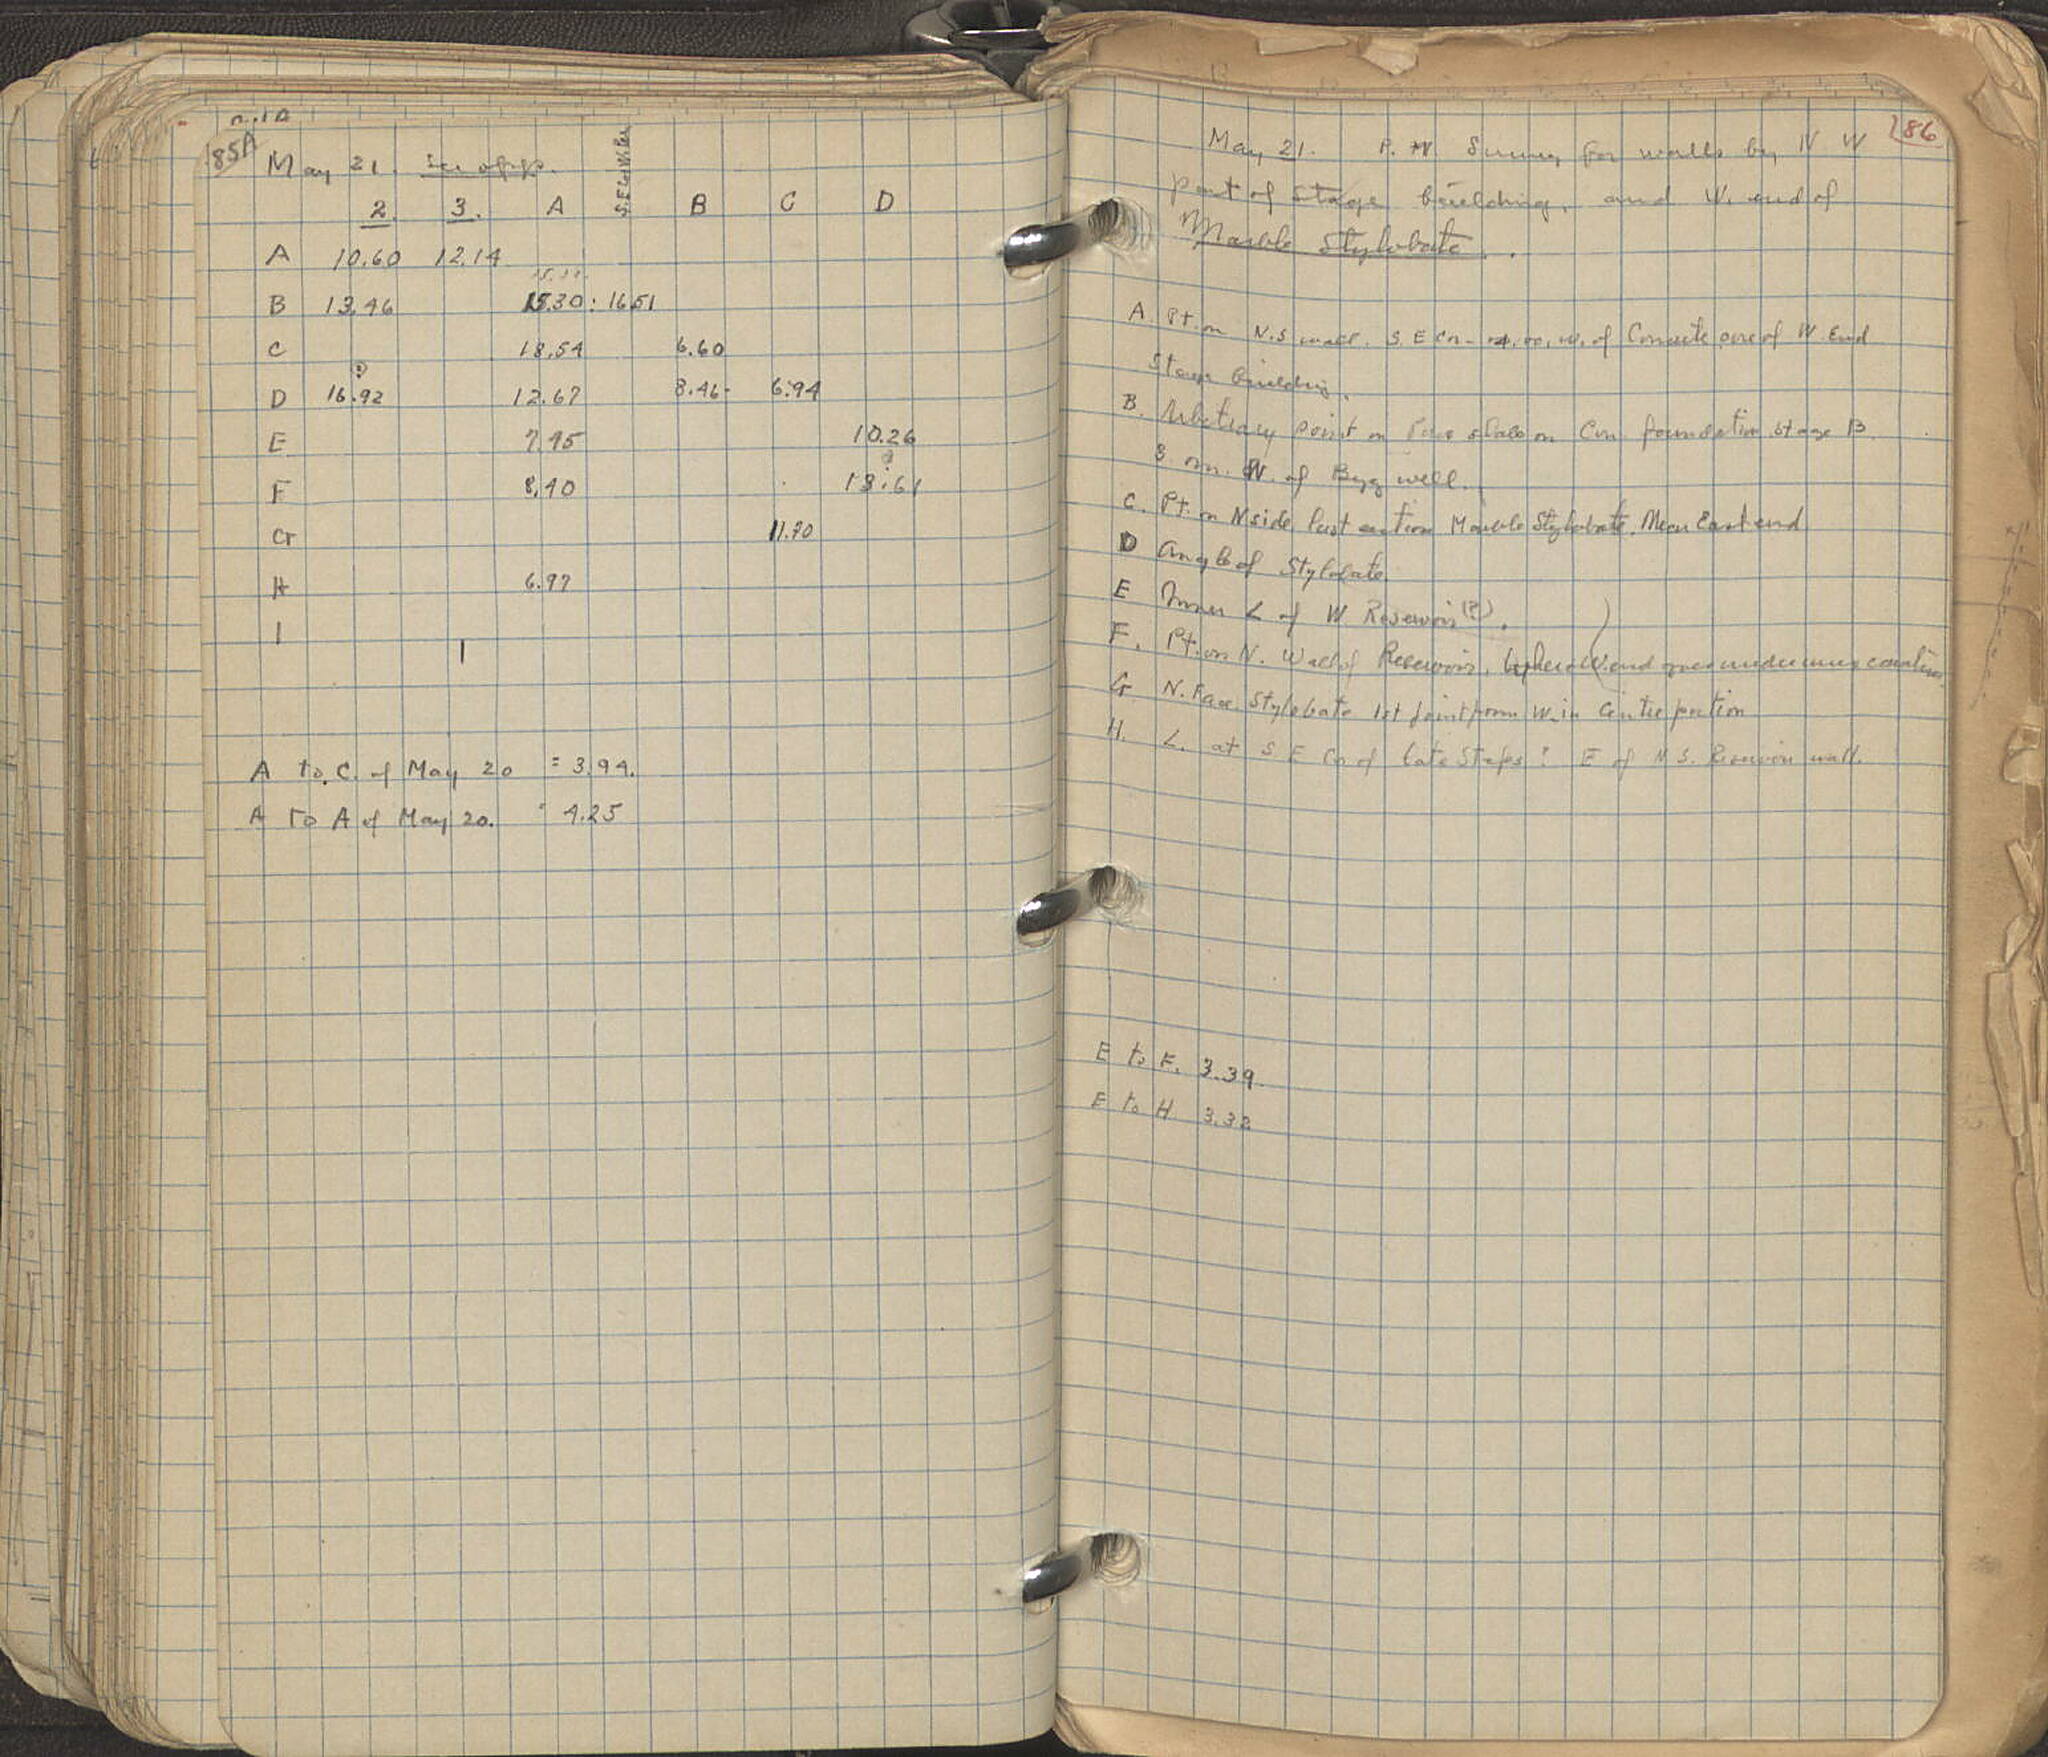 85A
May 21. See opp.
2. 3. A B C D
A 10.60 12.14
B 13.46 15.30 : 16.51
C 18.54 6.60
D 16.92 12.67 8.46 6.94
E 7.95 10.26
F 8.40 13.61
G 11.70
H 6.97
I
A to C. of May 20 = 3.94.
A to A of May 20. = 4.25
186
May 21. P.M. Survey for walls by N W
part of stage building, and W. end of
Marble Stylobate.
A. Pt. on N.S wall. S. E Cor. W. of Concrete core of W. End
Stage building.
B. Arbitrary point on slab on Con. foundation stage B.
8 m. W. of Byz well.
C. Pt. on N side last section Marble Stylobate. Near East end
D Angle of Stylobate
E Inner ∠ of W. Reservoir (?).
F. Pt. on N. Wall of Reservoir, where W. end goes under
G N. Face Stylobate 1st joint from W. in Centre portion
H. ∠. at S E Cor of late Steps? E of N S. Reservoir wall.
E to F. 3.39
E to H 3.32